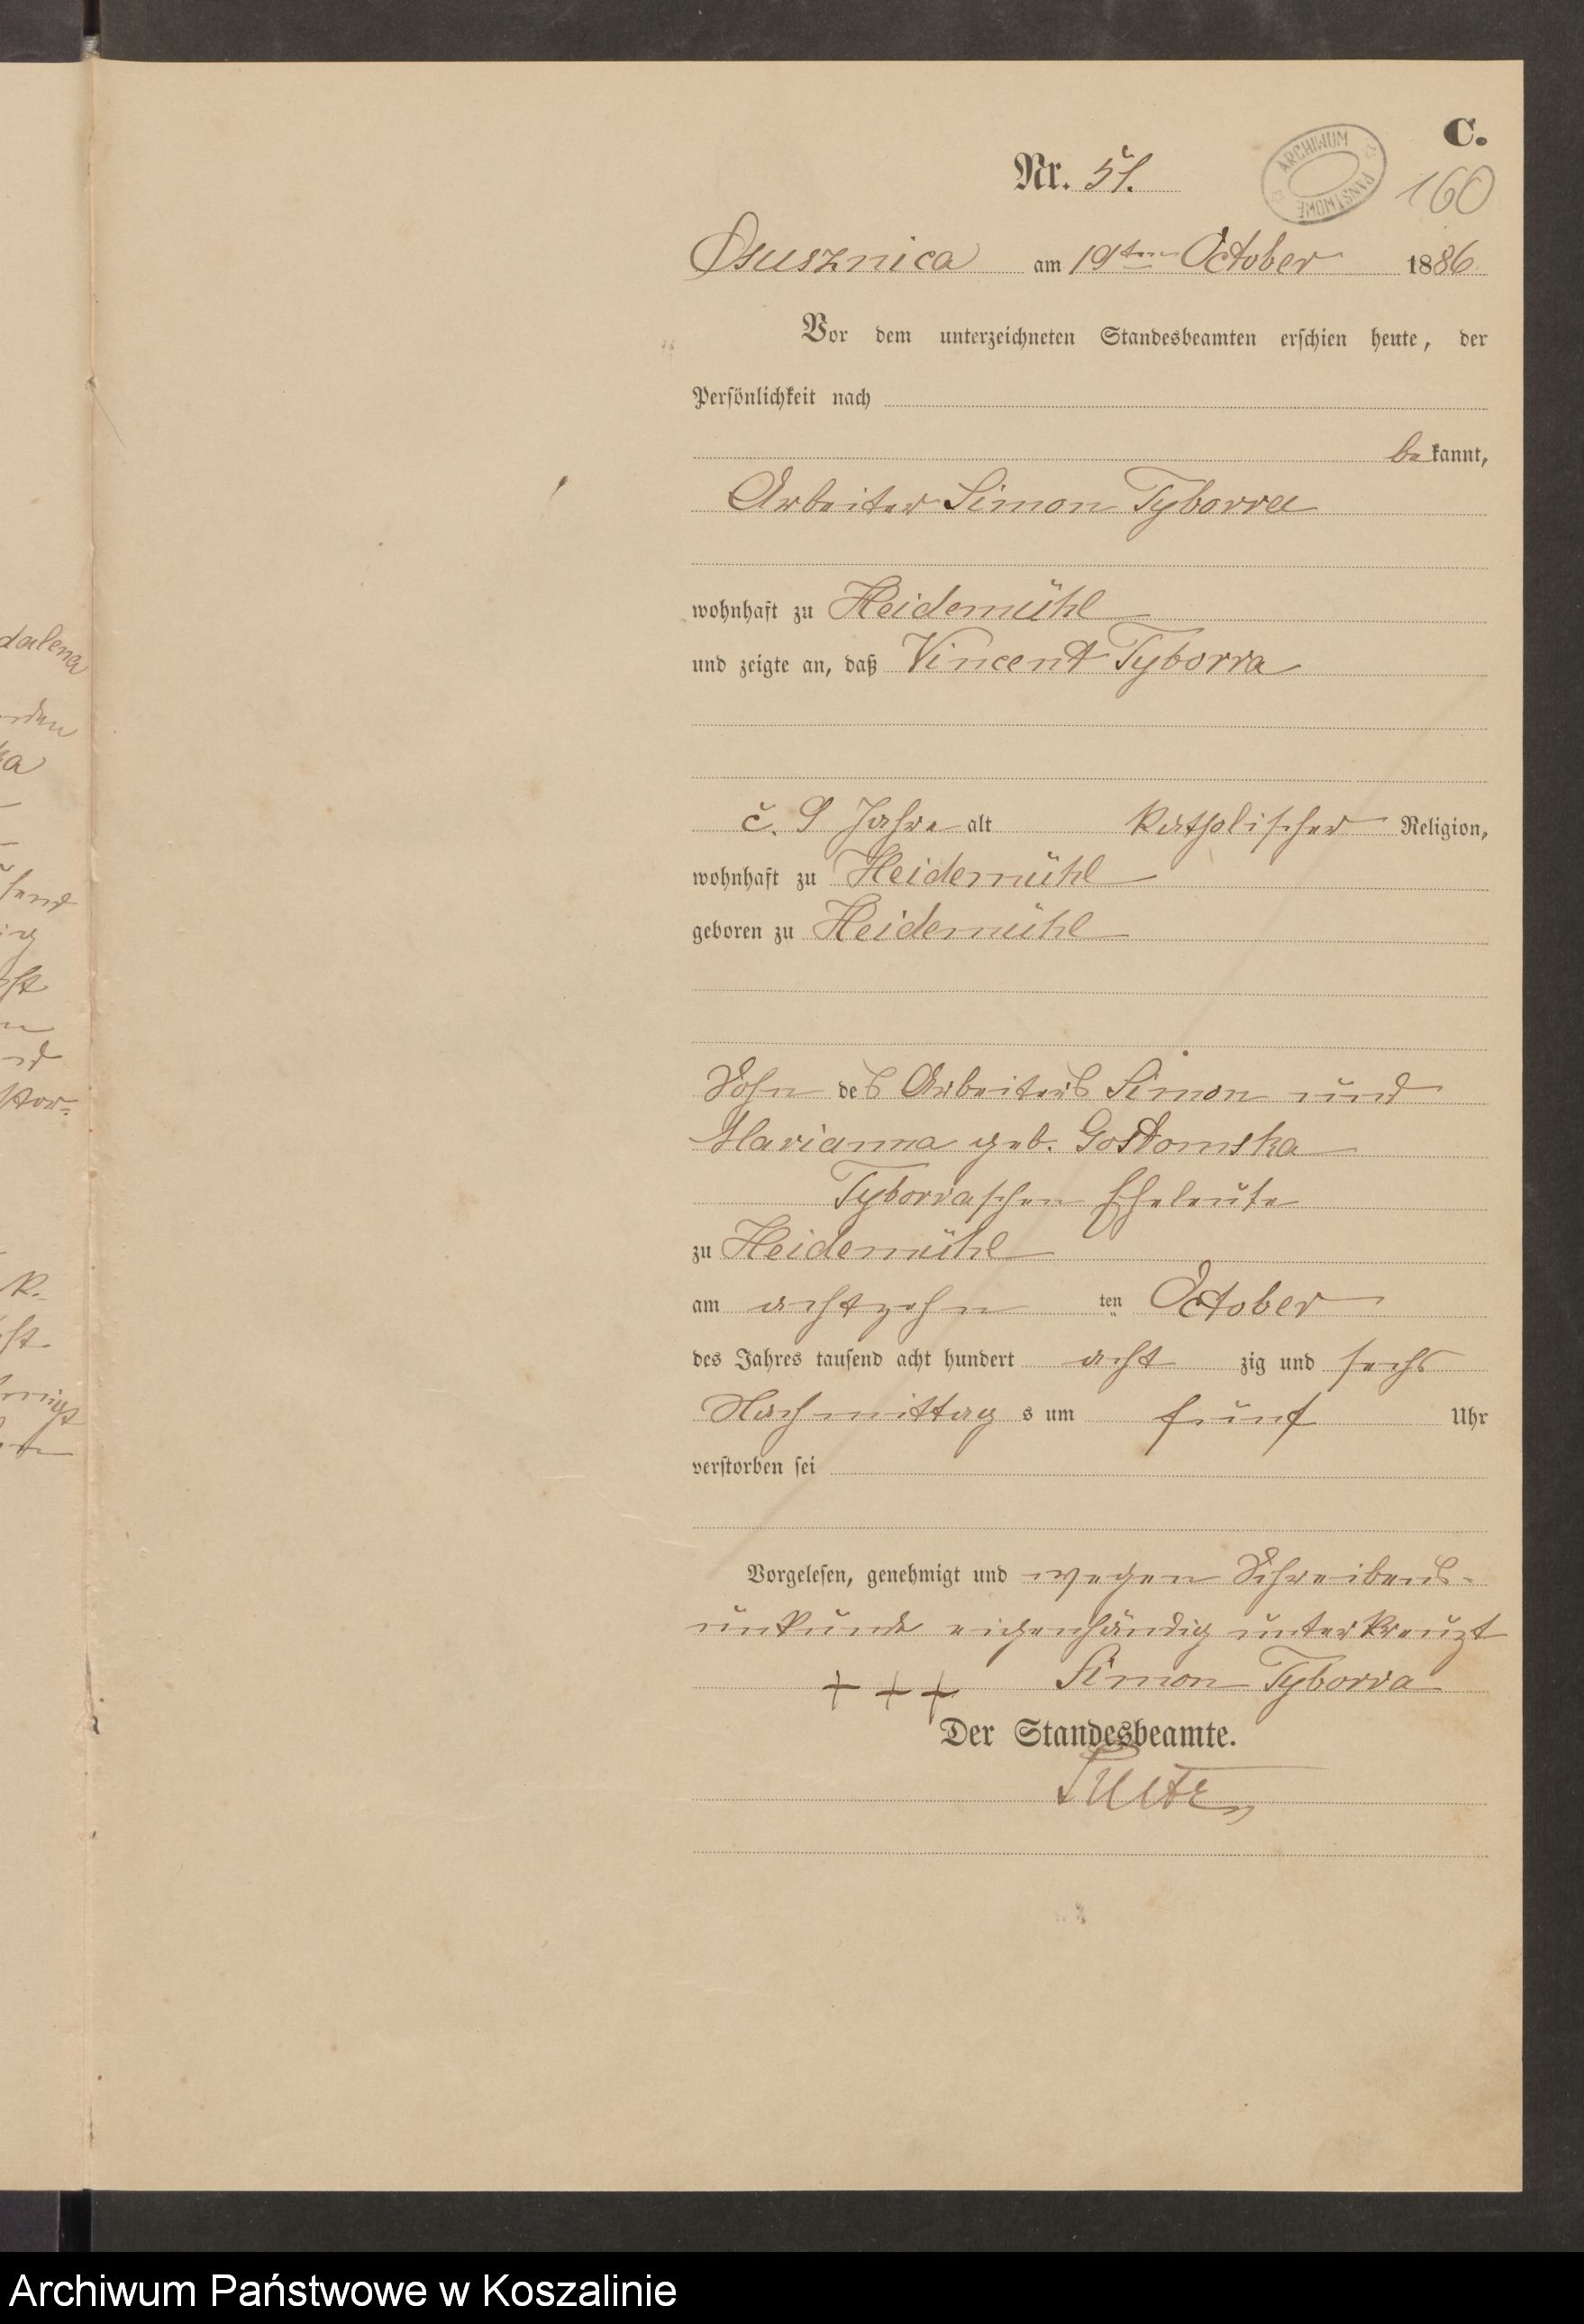 C.
Nr. 51.
ARCHIWUM PAŃSTWOWE
160
Osusznica am 19ten October 1886
Vor dem unterzeichneten Standesbeamten erschien heute, der
Persönlichkeit nach
bekannt,
Arbeiter Simon Tyborra
wohnhaft zu Heidemühl
und zeigte an, daß Vincent Tyborra
c. 9 Jahre alt katholischer Religion,
wohnhaft zu Heidemühl
geboren zu Heidemühl
Sohn des Arbeiters Simon und
Marianna geb. Gostomska
Tyborraschen Eheleute
zu Heidemühl
am achtzehn ten October
des Jahres tausend acht hundert acht zig und sechs
Nachmittag s um fünf Uhr
verstorben sei
Vorgelesen, genehmigt und wegen Schreibens-
unkunde eigenhändig unterkreuzt
+ + + Simon Tyborra
Der Standesbeamte.
dalena
Archiwum Państwowe w Koszalinie